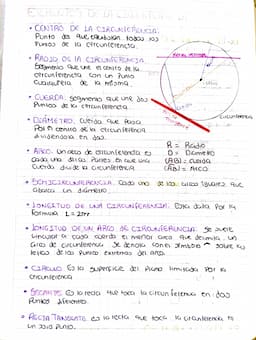 ELEMENTOS DE LA CIRCUNFERENCIA
• CENTRO DE LA CIRCUNFERENCIA:
Punto de que equidistan todos los
Puntos de la circunferencia.
• RADIO DE LA CIRCUNFERENCIA
Segmento que une el centro de la
circunferencia con un Punto
cualquiera de la misma.
• CUERDA: segmento que une dos
Puntos de la circunferencia.
• DIÁMETRO: cuerda que pasa
Por el centro de la circunferencia
dividiendola en dos.
• ARCO: Un arco de circunferencia es
cada una de las Partes en que una
cuerda divide la circunferencia
circunferencia
R = Radio
D = Diametro
(AB) = cuerda
(AB) = Arco
• SEMICIRCUNFERENCIA: Cada uno de los arcos iguales que
abarca un diametro
• LONGITUD DE UNA CIRCUNFERENCIA: Esta dada Por la
formula L = 2πr
• LONGITUD DE UN ARCO DE CIRCUNFERENCIA: Se suele
vincular a cada cuerda el menor arco que delimita. Un
arco de circunferencia se denota con el símbolo ⌒ sobre las
letras de los Puntos extremos del arco.
• CIRCULO Es la superficie del Plano limitada Por la
circunferencia
• SECANTE Es la recta que toca la circunferencia en dos
Puntos diferentes.
• RECTA TANGENTE es la recta que toca la circunferencia en
un solo punto.